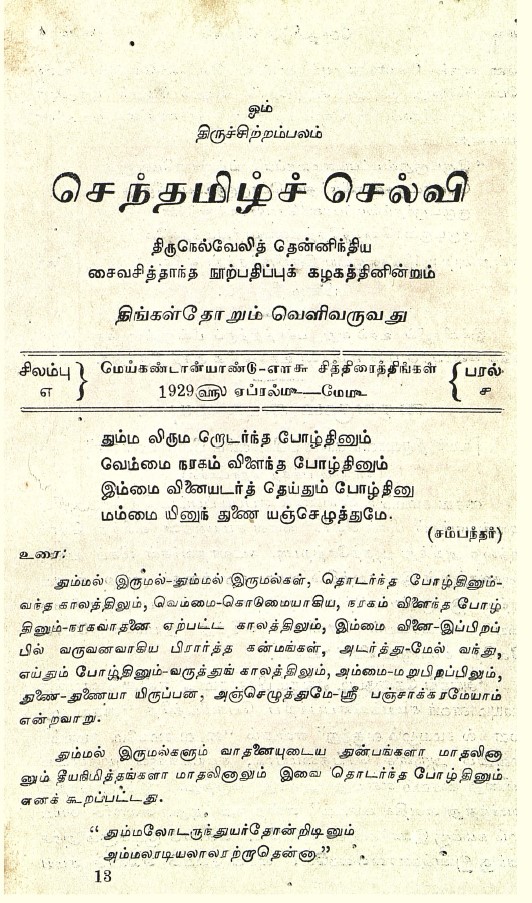 ஓம்
திருச்சிற்றம்பலம்
செந்தமிழ்ச் செல்வி
திருநெல்வேலித் தென்னிந்திய
சைவசித்தாந்த நூற்பதிப்புக் கழகத்தினின்றும்
திங்கள்தோறும் வெளிவருவது
சிலம்பு } மெய்கண்டான்யாண்டு-எளசு சித்திரைத்திங்கள் { பரல்
எ 1929௵ ஏப்ரல்௴—மே௴ ச
தும்ம லிரும றொடர்ந்த போழ்தினும்
வெம்மை நரகம் விளைந்த போழ்தினும்
இம்மை வினையடர்த் தெய்தும் போழ்தினு
மம்மை யினுந் துணை யஞ்செழுத்துமே.
(சம்பந்தர்)
உரை:
தும்மல் இருமல்-தும்மல் இருமல்கள், தொடர்ந்த போழ்தினும்-
வந்த காலத்திலும், வெம்மை-கொடுமையாகிய, நரகம் விளைந்த போழ்
தினும்-நரகவாதனை ஏற்பட்ட காலத்திலும், இம்மை வினை-இப்பிறப்
பில் வருவனவாகிய பிரார்த்த கன்மங்கள், அடர்த்து-மேல் வந்து,
எய்தும் போழ்தினும்-வருத்துங் காலத்திலும், அம்மை-மறுபிறப்பிலும்,
துணை-துணையா யிருப்பன, அஞ்செழுத்துமே-ஸ்ரீ பஞ்சாக்கரமேயாம்
என்றவாறு.
தும்மல் இருமல்களும் வாதனையுடைய துன்பங்களா மாதலினா
னும் தீயநிமித்தங்களா மாதலினாலும் இவை தொடர்ந்த போழ்தினும்
எனக் கூறப்பட்டது.
“தும்மலோடருந்துயர்தோன்றிடினும்
அம்மலரடியலாலரற்றாதென்னா”
13